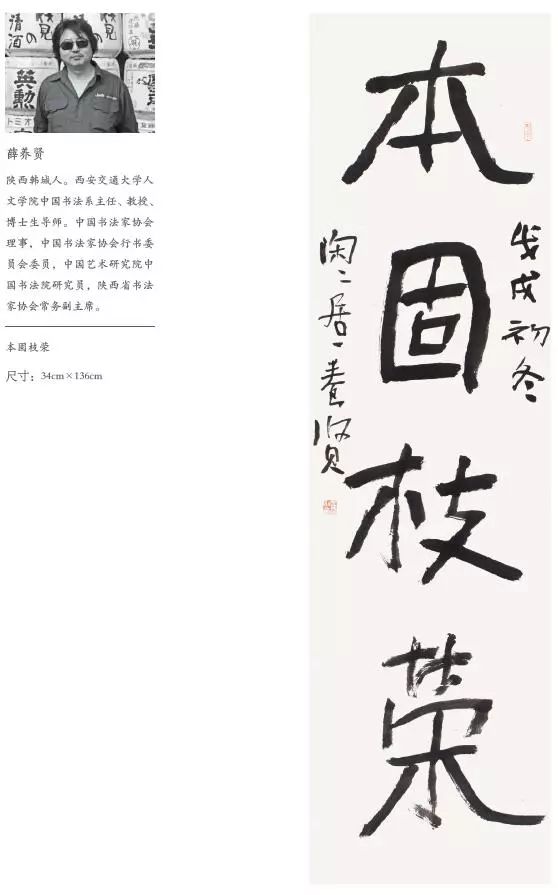 清酒
の
伏見
英勲
薛养贤
陕西韩城人。西安交通大学人
文学院中国书法系主任、教授、
博士生导师。中国书法家协会
理事，中国书法家协会行书委
员会委员，中国艺术研究院中
国书法院研究员，陕西省书法
家协会常务副主席。
本固枝荣
尺寸：34cm×136cm
戊戌初冬
本固枝荣
居 養贤